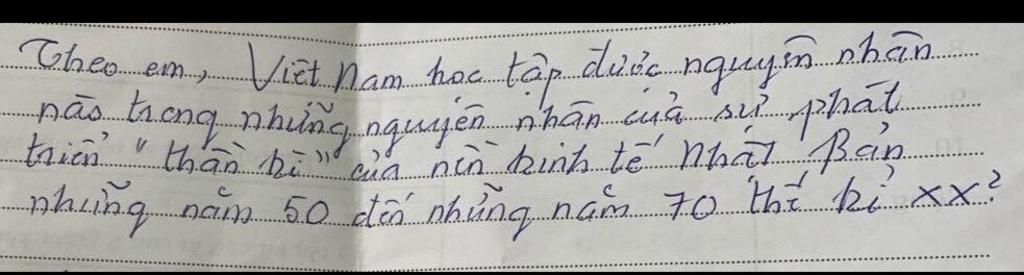 Theo em, Việt Nam học tập được nguyên nhân
nào trong những nguyên nhân của sự phát
triển "thần kì" của nền kinh tế Nhật Bản
những năm 50 đến những năm 70 thế kỉ XX?